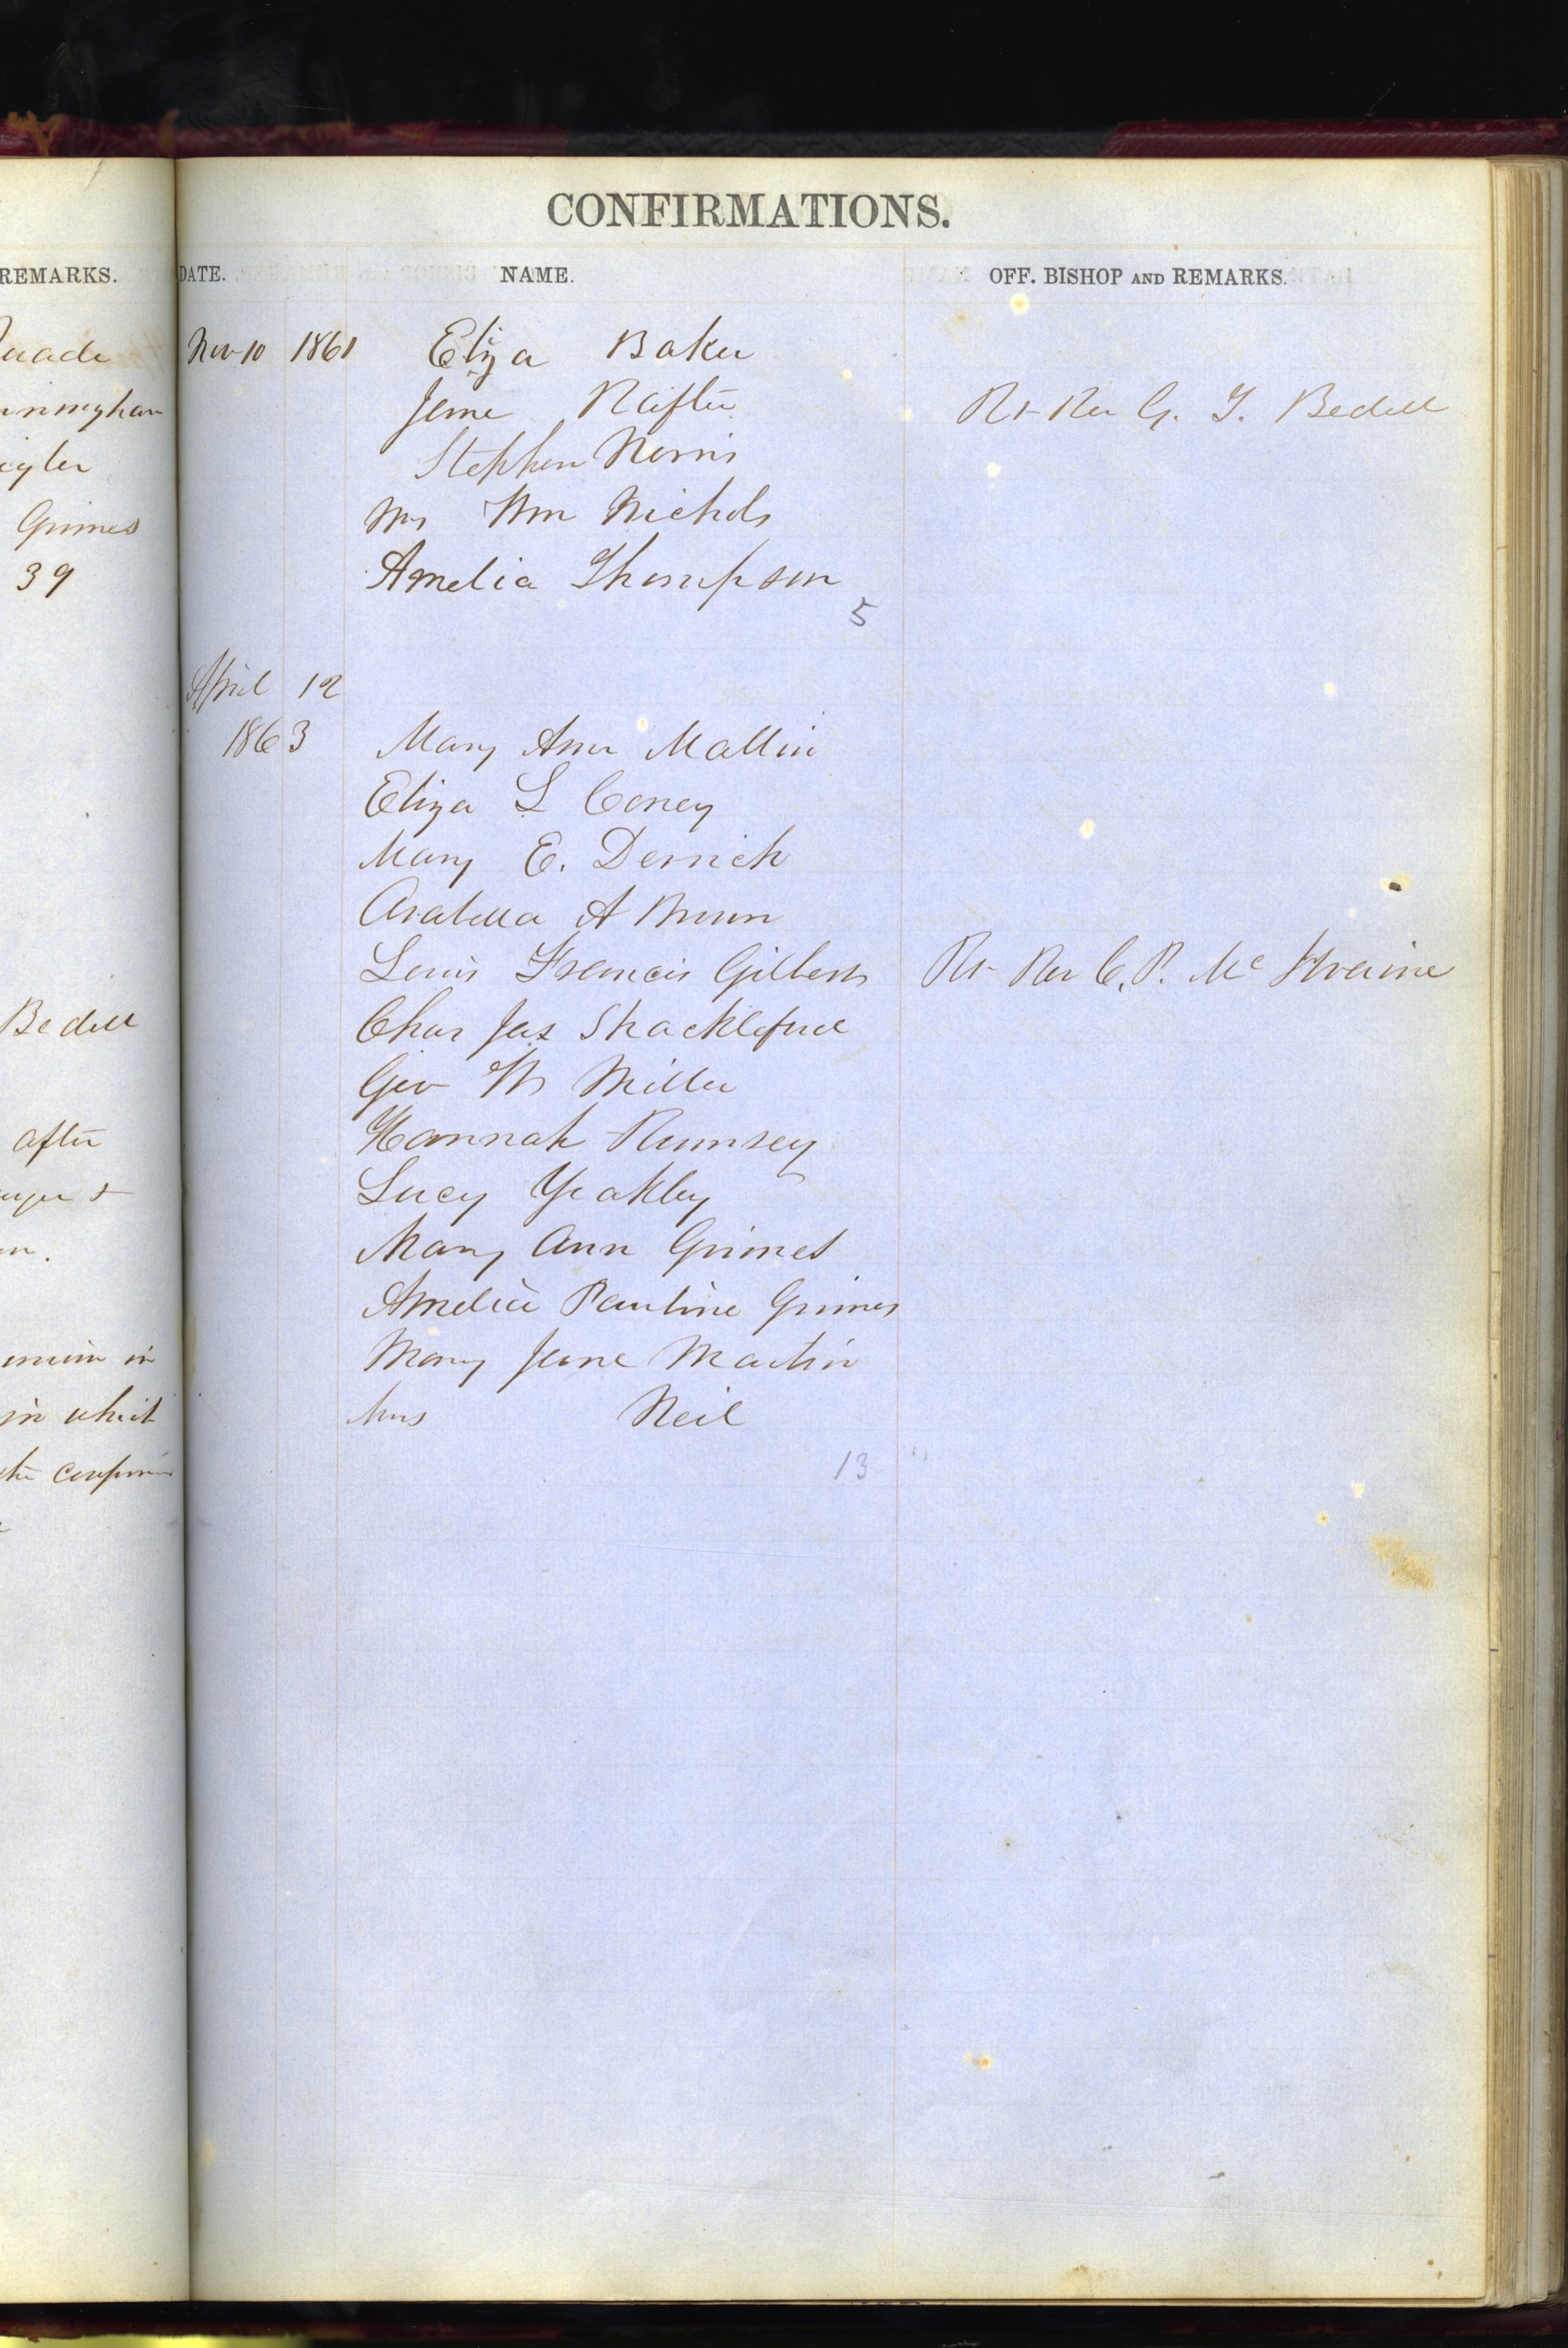 CONFIRMATIONS.
REMARKS.
Grimes
39
Bedell
after
in which
DATE. NAME. OFF. BISHOP AND REMARKS.
Nov 10 1861 Eliza Baker
Jane Rafter Rt Rev G. T. Bedell
Stephen Norris
Mrs Wm Nichols
Amelia Thompson
5
April 12
1863 Mary Ann Mallin
Eliza L Coney
Mary E. Derrick
Arabella A Brown
Louis Francis Gilbert Rt Rev C. P. McIlvaine
Chas Jas Shackleford
Geo W Miller
Hannah Rumsey
Lucy Yeakley
Mary Ann Grimes
Amelia Pauline Grimes
Mary Jane Martin
Mrs Neil
13